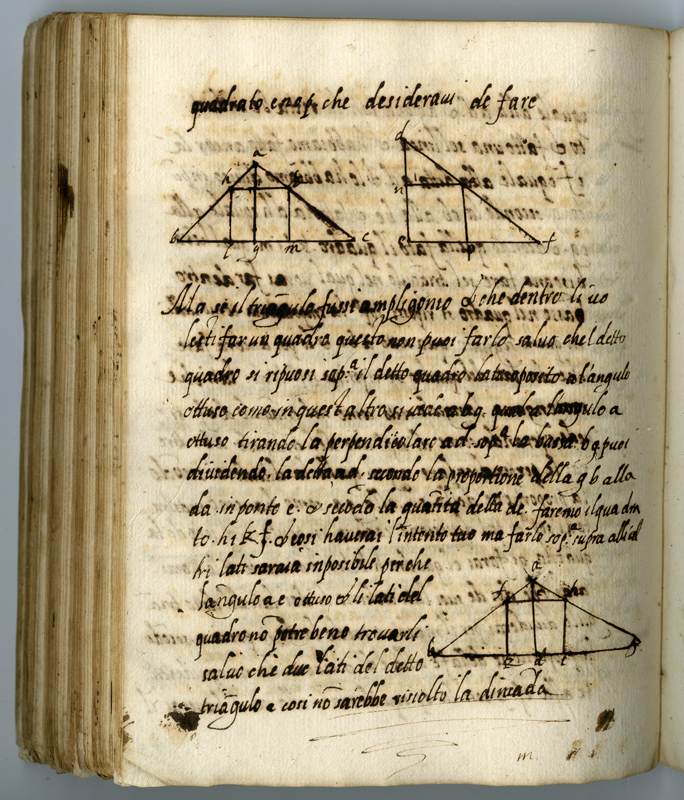 quadrato enap che desideravi de fare
a
h
b
l
g
m
c
d
n
p
f
Ma se il triãgulo fussi ampligonio & che dentro li vo
lesti far un quadro questo non puoi farlo salvo che l detto
quadro si riposi sop.ª il detto quadro lato oposito a l'angulo
ottuso como in quest altro si vede a b g quale langulo a
ottuso tirando la perpendicolare a d sop.ª la bassa b g puoi
dividendo la detta a d secondo la proportione della g b alla
da in ponto e & secõdo la quãtità della de faremo il quadra
to h i k f & cosi haverai l'intento tuo ma farlo sop.ª supra alli al
tri lati saraia inposibile perche
langulo a e ottuso & li lati del
quadro nõ potrebeno trovarsi
salvo che due lati del detto
triãgulo e cosi nõ sarebbe risiolto la dimãda
a
f
e
h
b
k
d
i
g
m